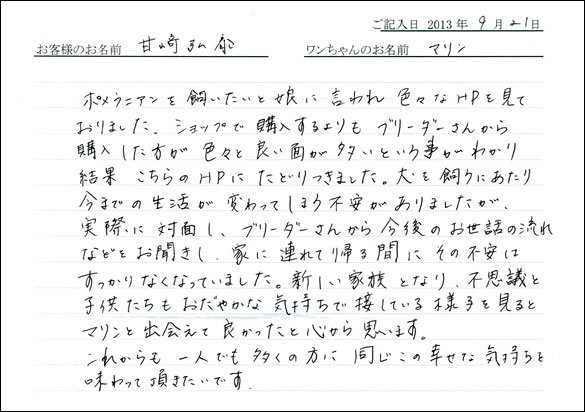 ご記入日 2013年 9月 21日
お客様のお名前 甘崎弘郁 ワンちゃんのお名前 マリン
ポメラニアンを飼いたいと娘に言われ 色々なHPを見て
おりました。ショップで購入するよりも ブリーダーさんから
購入した方が 色々と良い面が多いという事がわかり
結果 こちらのHPにたどりつきました。犬を飼うにあたり
今までの生活が 変わってしまう不安がありましたが、
実際に対面し、ブリーダーさんから今後のお世話の流れ
などをお聞きし、家に連れて帰る間に その不安は
すっかりなくなっていました。新しい家族となり、不思議と
子供たちもおだやかな気持ちで接している様子を見ると
マリンと出会えて良かったと心から思います。
これからも 一人でも多くの方に 同じこの幸せな気持ちを
味わって頂きたいです。